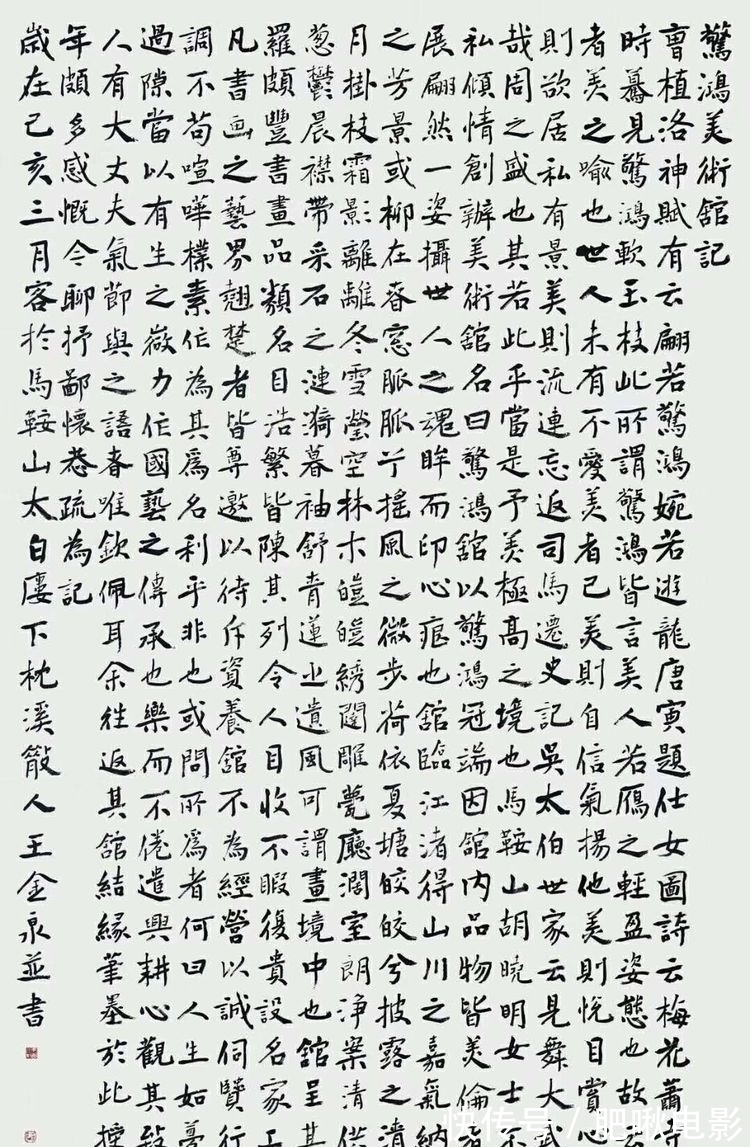 驚鴻美術舘記
曹植洛神賦有云翩若驚鴻婉若遊龍唐寅題仕女圖詩云梅花蕭
時驀見驚鴻軟玉枝此所謂驚鴻皆言美人若鴈之輕盈姿態也故
者美之喻也世人未有不愛美者己美則自信氣揚他美則悅目賞心
則欲居私有景美則流連忘返司馬遷史記吳太伯世家云見舞大武
哉周之盛也其若此乎當是予美極高之境也馬鞍山胡曉明女士
私傾情創辦美術舘名曰驚鴻舘以驚鴻冠端因舘内品物皆美倫
展翩然一姿攝世人之魂眸而印心痕也舘臨江渚得山川之嘉氣納
之芳景或柳在春窓脈脈兮搖風之微步荷依夏塘皎皎兮披露之清
月掛枝霜影離離冬雪瑩空林木皚皚綉闥雕甍廳濶室朗淨案清供
葱鬱晨襟帶采石之漣漪暮袖舒青蓮之遺風可謂畫境中也舘呈其
羅頗豐書畫品類名目浩繁皆陳其列令人目收不暇復貴設名家
凡書画之藝界翹楚者皆尊邀以待斥資養舘不為經營以誠伺贊行
調不苟喧嘩樸素作為其爲名利乎非也或問所爲者何曰人生如
過隙當以有生之歲力作國藝之傳承也樂而不倦遣興耕心觀其致
人有大丈夫氣節與之語者唯欽佩耳余往返其舘結緣筆墨於此
年頗多感慨今聊抒鄙懷恭疏為記
歲在己亥三月客於馬鞍山太白廔下枕溪散人王金泉並書
快传号/肥啾电影